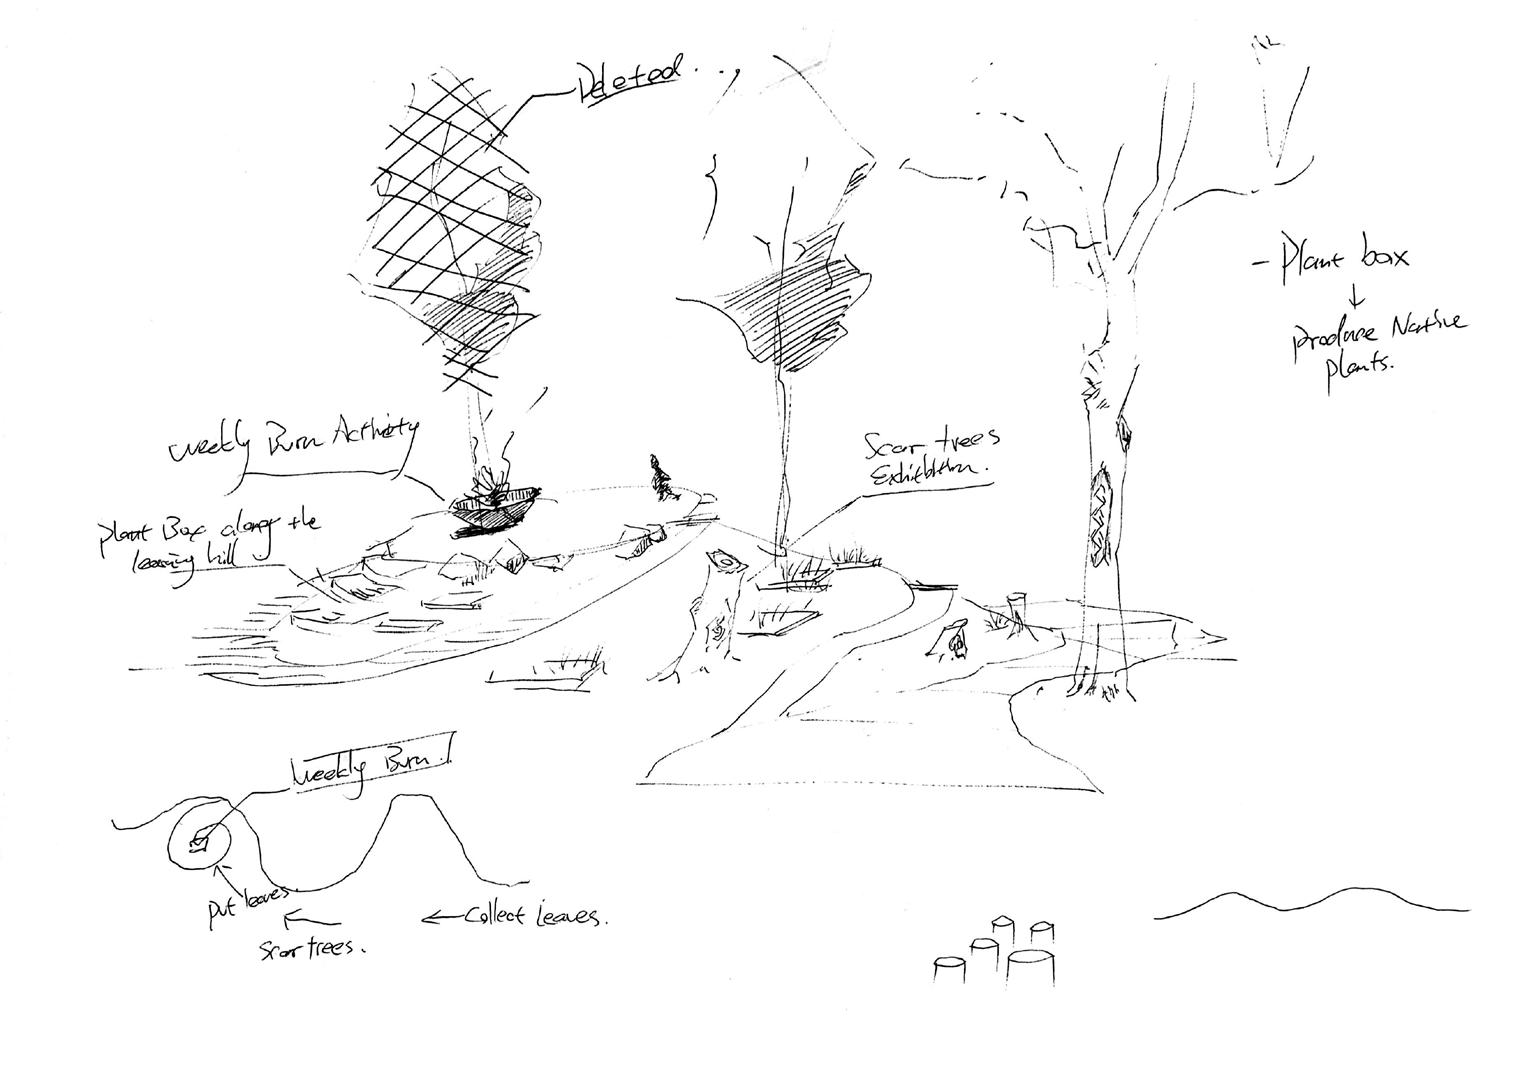 Deleted
- Plant box
↓
produce Native
plants.
Weekly Burn Activity
Scar trees
Exhibition.
Plant Box along the
learning hill
Weekly Burn.
put leaves.
← Collect leaves.
←
Scar trees.